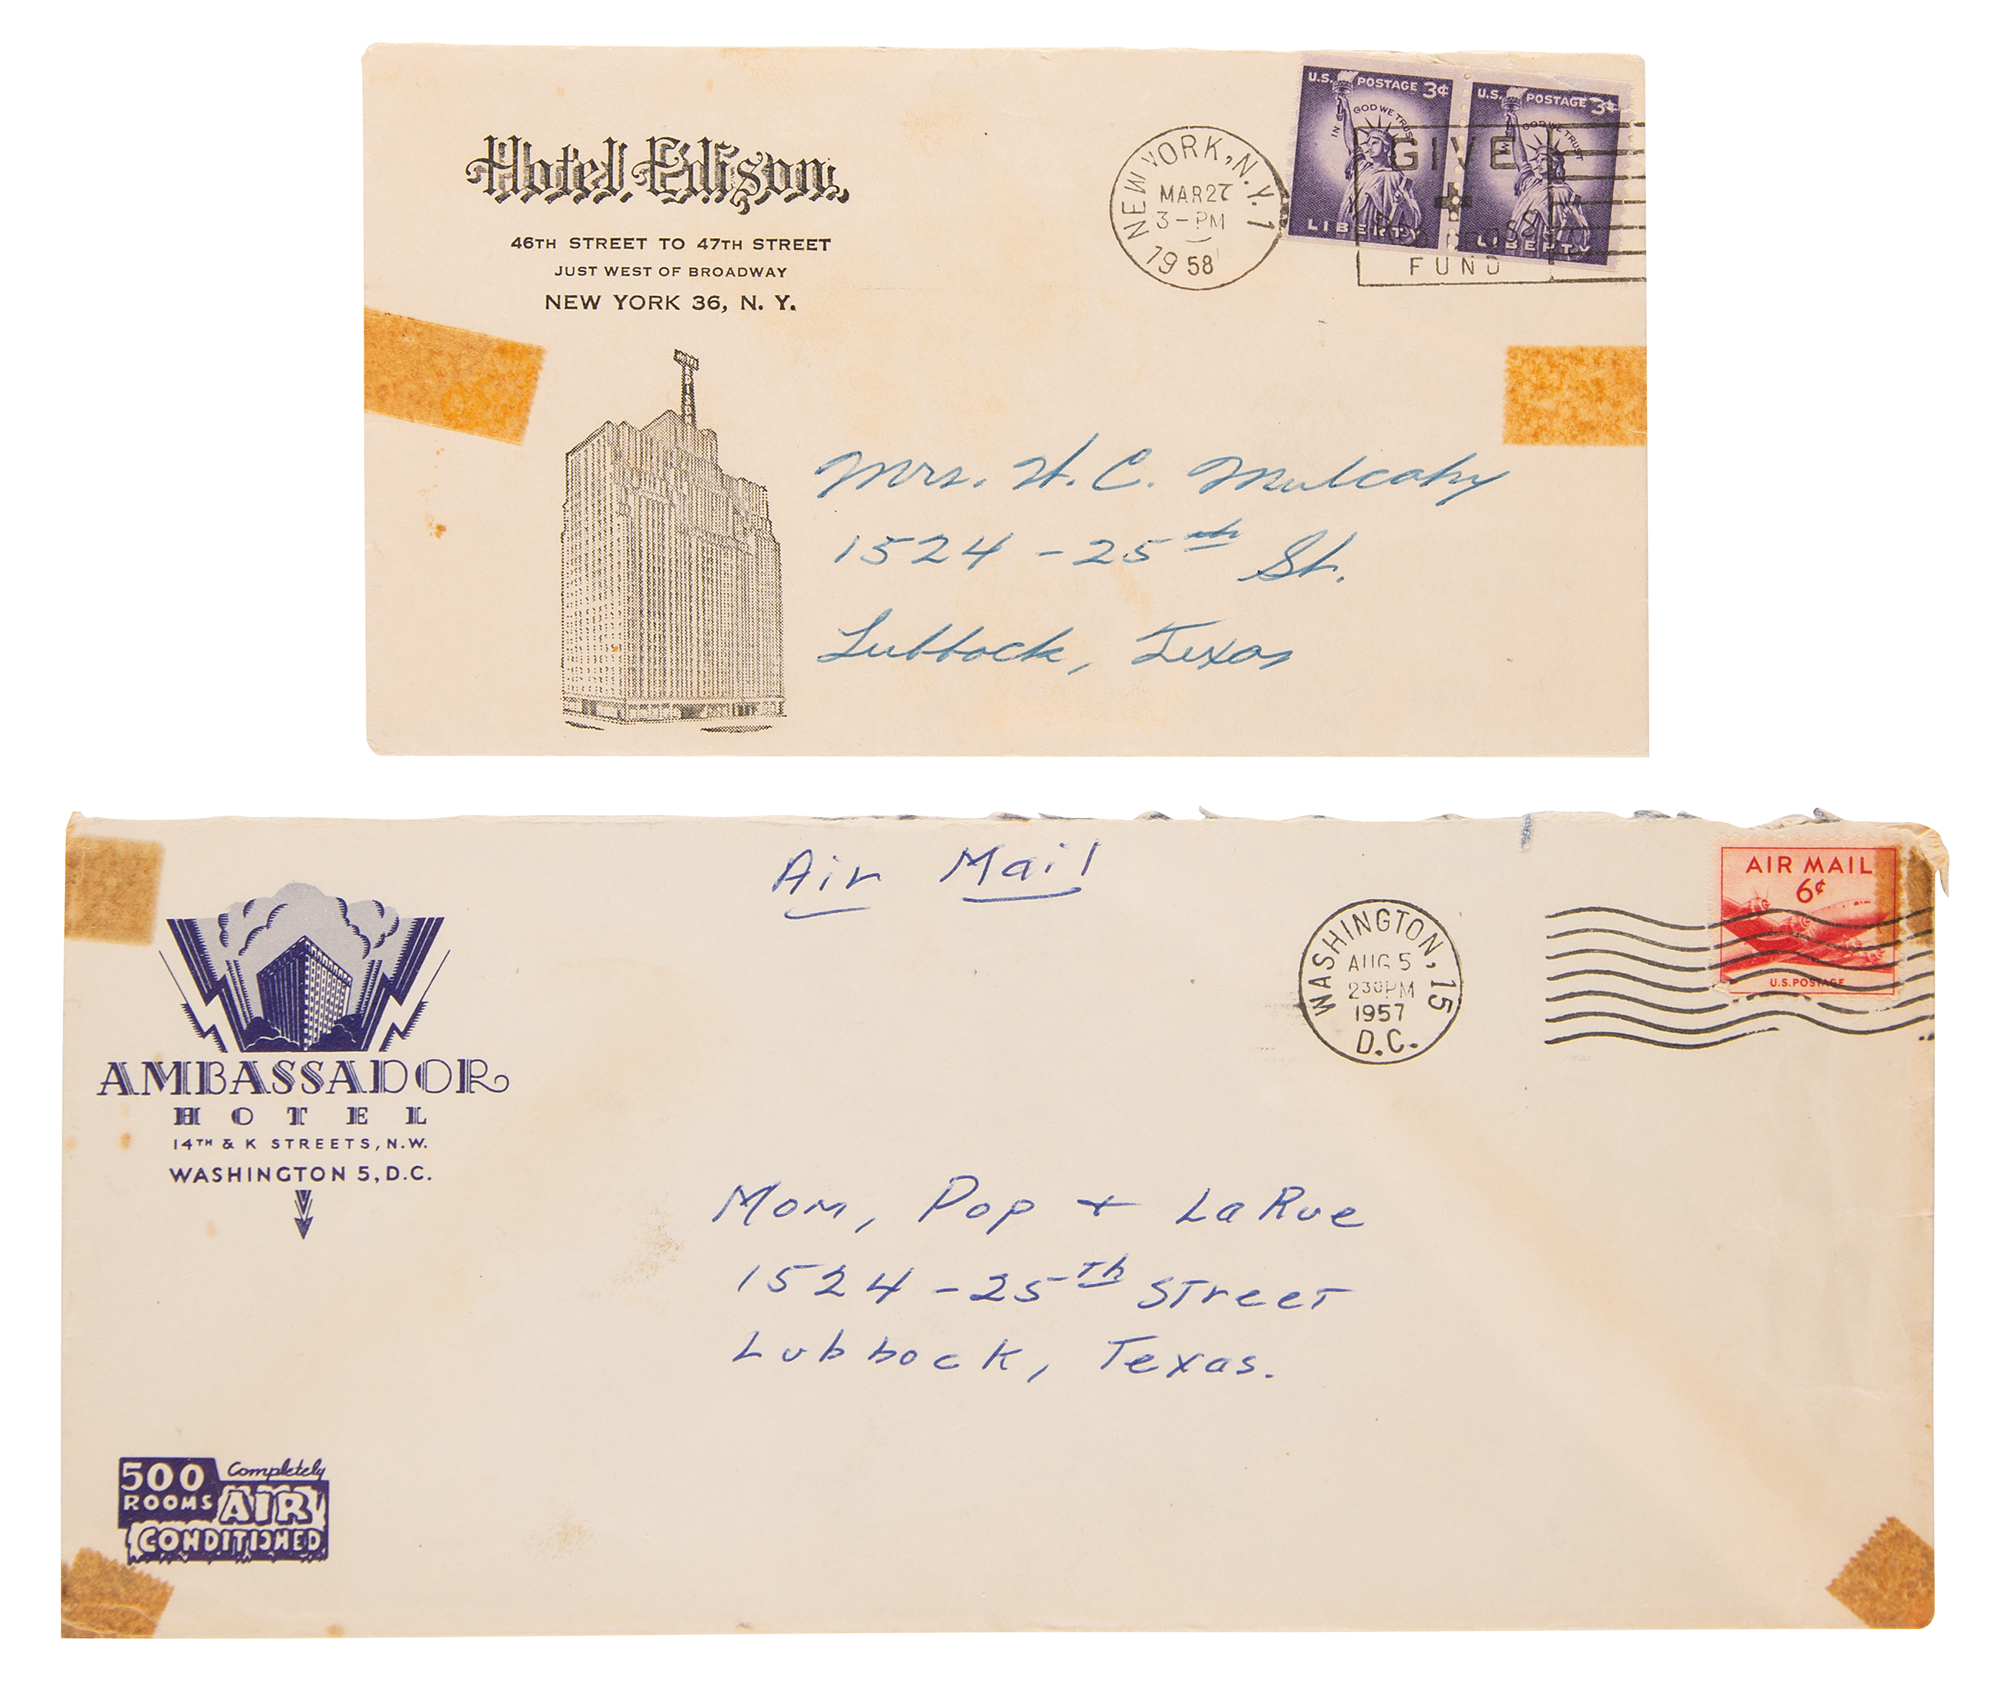 Hotel Edison
46TH STREET TO 47TH STREET
JUST WEST OF BROADWAY
NEW YORK 36, N. Y.
NEW YORK, N.Y. 1
MAR 27
3 - PM
1958
U.S. POSTAGE 3¢
IN GOD WE TRUST
LIBERTY
U.S. POSTAGE 3¢
IN GOD WE TRUST
LIBERTY
GIVE
FUND
Mrs. H. C. Mulcahy
1524 - 25th St.
Lubbock, Texas
Air Mail
AMBASSADOR
HOTEL
14TH & K STREETS, N.W.
WASHINGTON 5, D.C.
WASHINGTON, 15
AUG 5
230 PM
1957
D.C.
AIR MAIL
6¢
U.S. POSTAGE
Mom, Pop + LaRue
1524 - 25Th Street
Lubbock, Texas.
500 Completely
ROOMS AIR
CONDITIONED